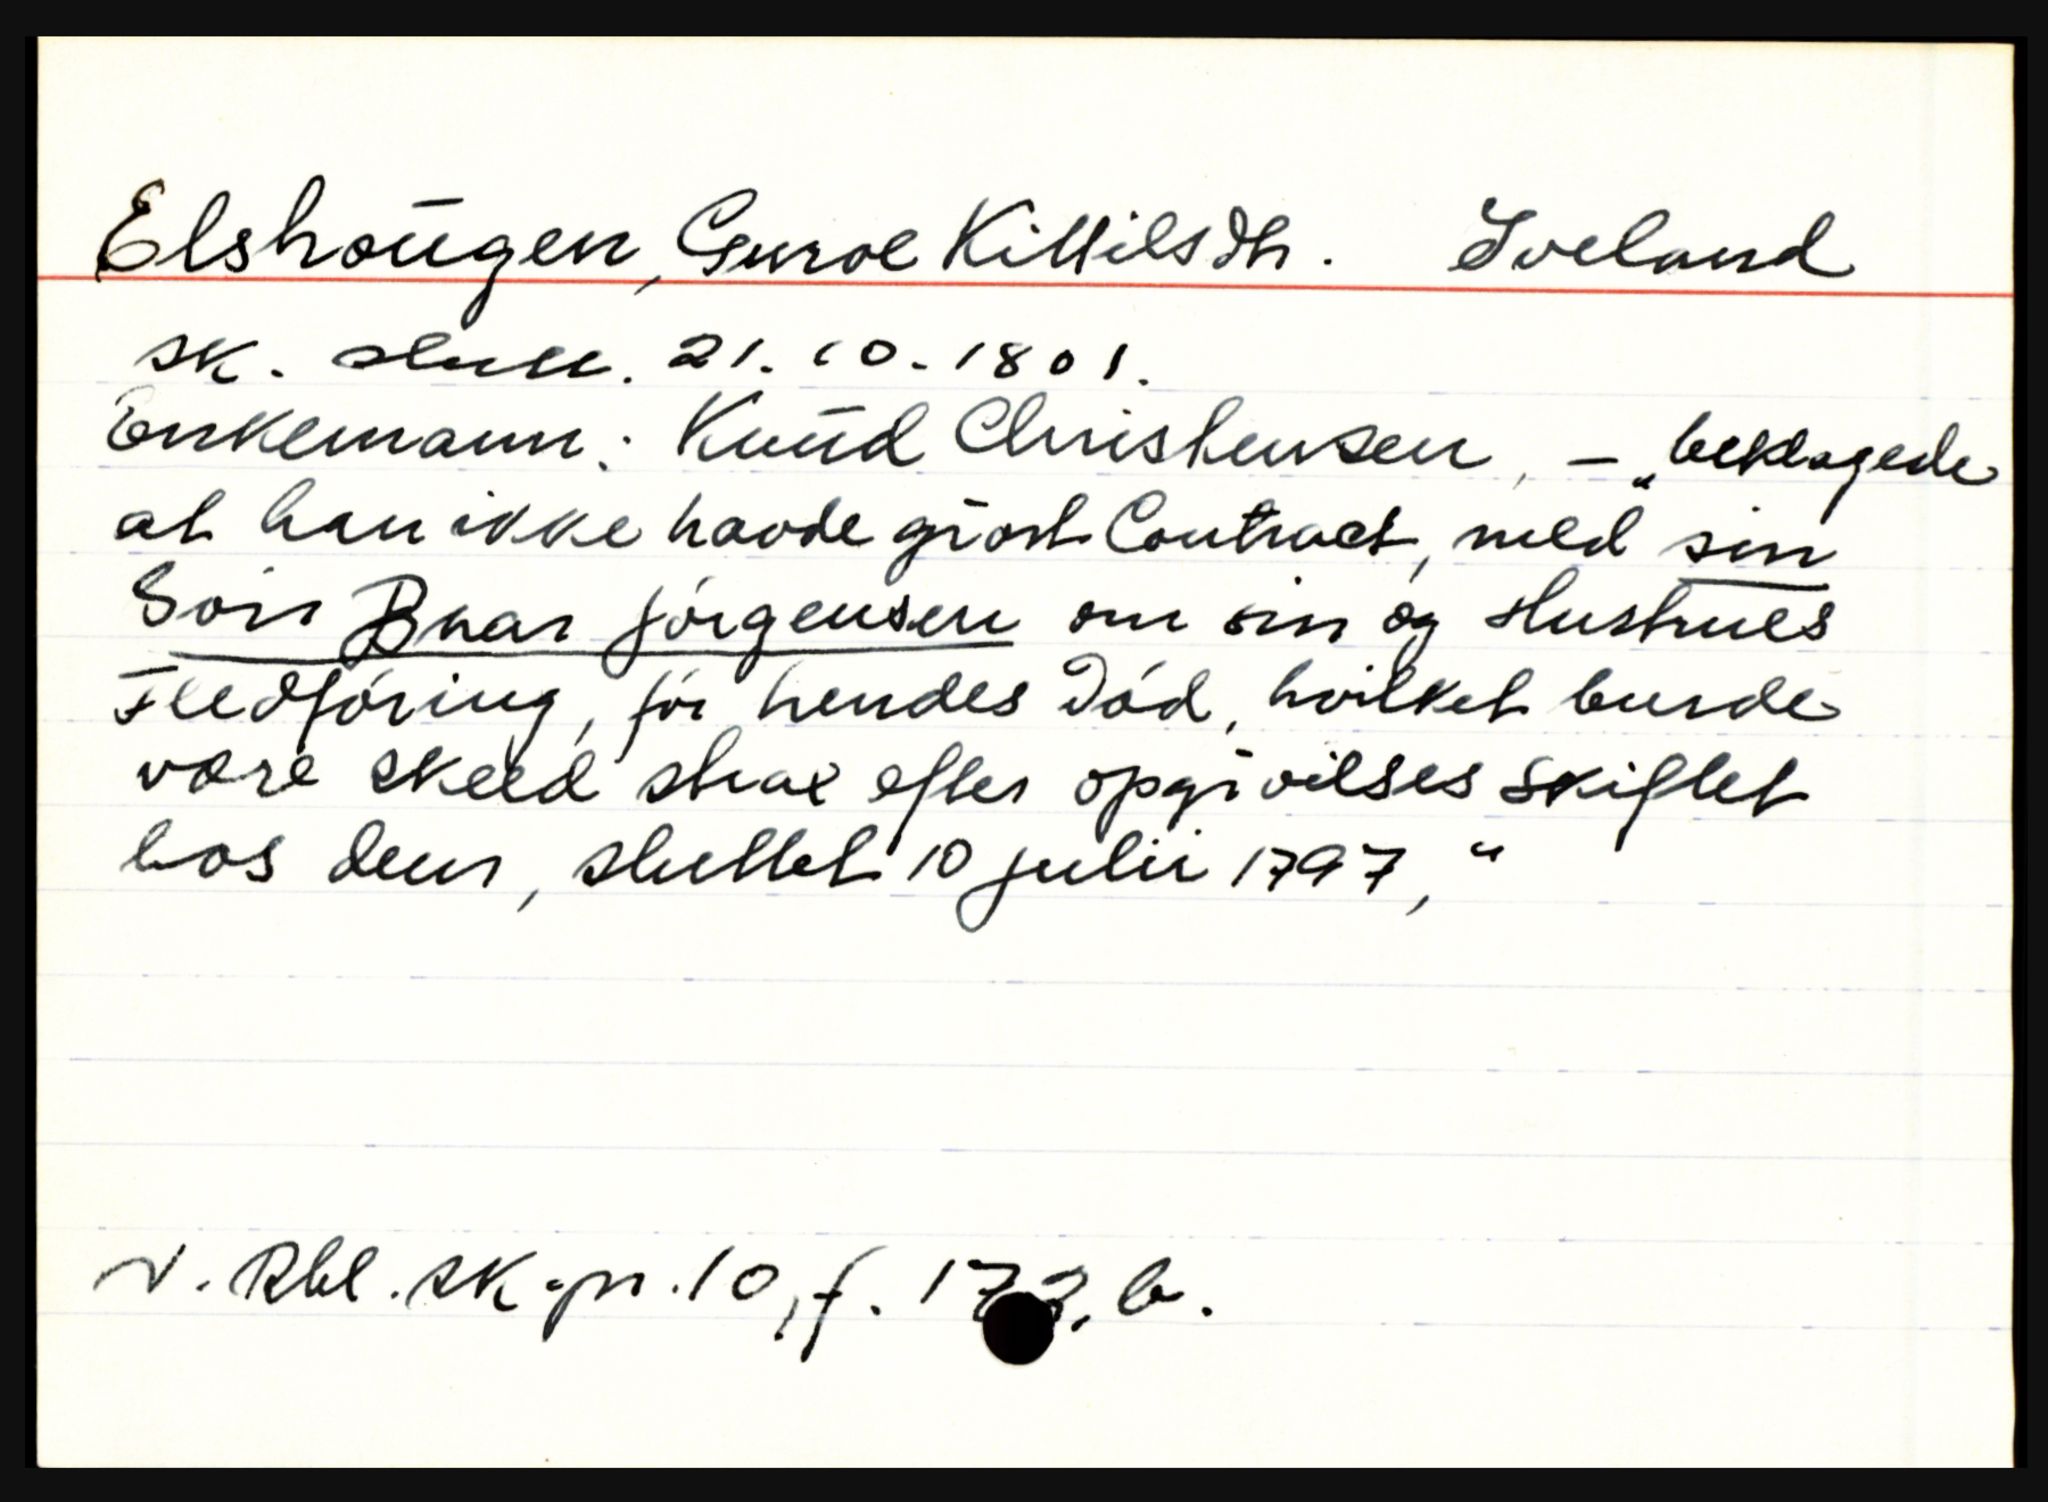 Elshougen, Guroe Kittilsdtr. Iveland
sk. slutt. 21.10.1801.
Enkemann: Knud Christensen, – „beklagede
at han ikke havde giort Contract, med sin
Sön Bnar Jörgensen om sin og Hustrues
Fledföring, för hendes Död, hvilket burde
være skeed strax efter opgivilses skiftet
hos dem, sluttet 10 julii 1797,"
N. Rbl. sk.pr. 10, f. b.